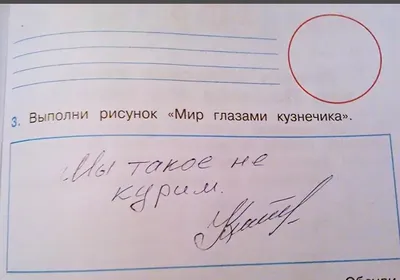 3. Выполни рисунок «Мир глазами кузнечика».
Мы такое не
курим.